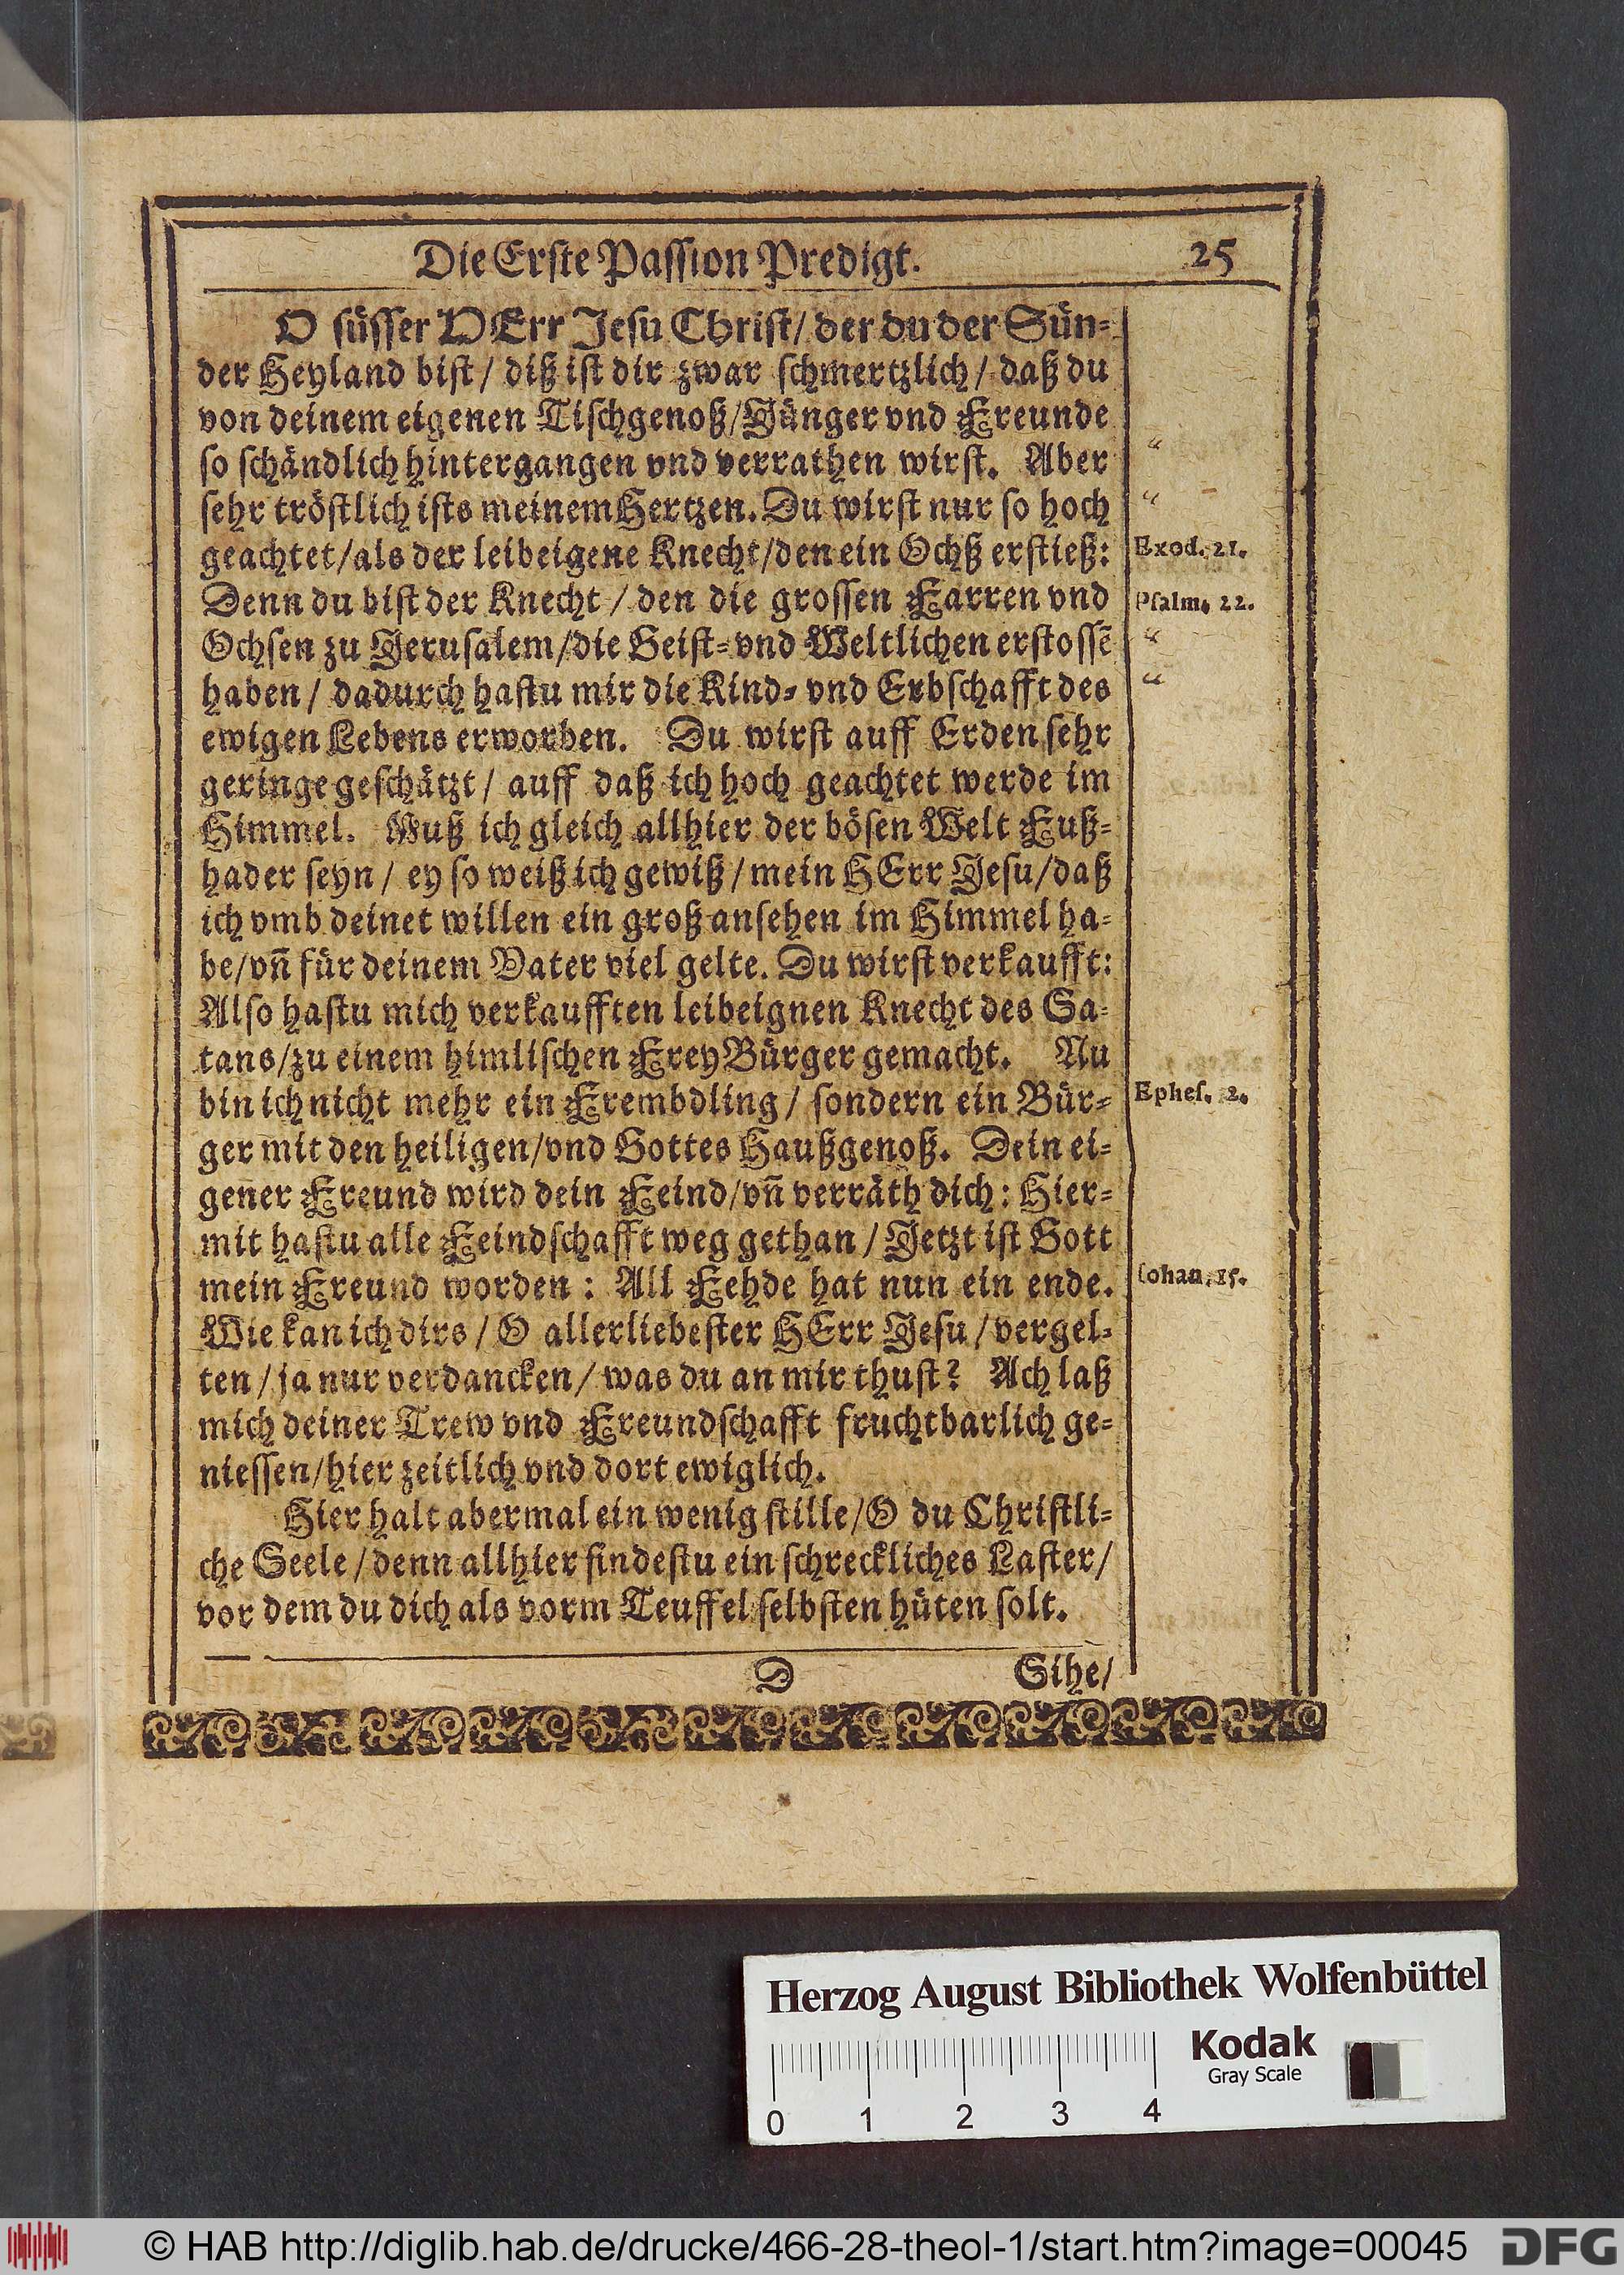 Die Erste Passion Predigt. 25
O süsser HErr Jesu Christ/ der du der Sün-
der Heyland bist/ diß ist dir zwar schmertzlich/ daß du
von deinem eigenen Tischgenoß/Jünger vnd Freunde
so schändlich hintergangen vnd verrathen wirst. Aber
sehr tröstlich ists meinem Hertzen. Du wirst nur so hoch
geachtet/als der leibeigene Knecht/den ein Ochß erstieß:
Exod. 21.
Denn du bist der Knecht/ den die grossen Farren vnd
Psalm. 22.
Ochsen zu Jerusalem/die Geist- vnd Weltlichen erstossē
haben/ dadurch hastu mir die Kind- vnd Erbschafft des
ewigen Lebens erworben. Du wirst auff Erden sehr
geringe geschätzt/ auff daß ich hoch geachtet werde im
Himmel. Muß ich gleich allhier der bösen Welt Fuß-
hader seyn/ ey so weiß ich gewiß/mein HErr Jesu/daß
ich vmb deinet willen ein groß ansehen im Himmel ha-
be/vñ für deinem Vater viel gelte. Du wirst verkaufft:
Also hastu mich verkaufften leibeignen Knecht des Sa-
tans/zu einem himlischen FreyBürger gemacht. Nu
bin ich nicht mehr ein Frembdling/ sondern ein Bür-
Ephes. 2.
ger mit den heiligen/vnd Gottes Haußgenoß. Dein ei-
gener Freund wird dein Feind/vñ verräth dich: Hier-
mit hastu alle Feindschafft weg gethan/ Jetzt ist Gott
mein Freund worden: All Fehde hat nun ein ende.
Iohan. 15.
Wie kan ich dirs/ O allerliebester HErr Jesu/vergel-
ten/ ja nur verdancken/ was du an mir thust? Ach laß
mich deiner Trew vnd Freundschafft fruchtbarlich ge-
niessen/hier zeitlich vnd dort ewiglich.
Hier halt abermal ein wenig stille/O du Christli-
che Seele/denn allhier findestu ein schreckliches Laster/
vor dem du dich als vorm Teuffel selbsten hüten solt.
D Sihe/
Herzog August Bibliothek Wolfenbüttel
Kodak
Gray Scale
0 1 2 3 4
© HAB http://diglib.hab.de/drucke/466-28-theol-1/start.htm?image=00045
DFG